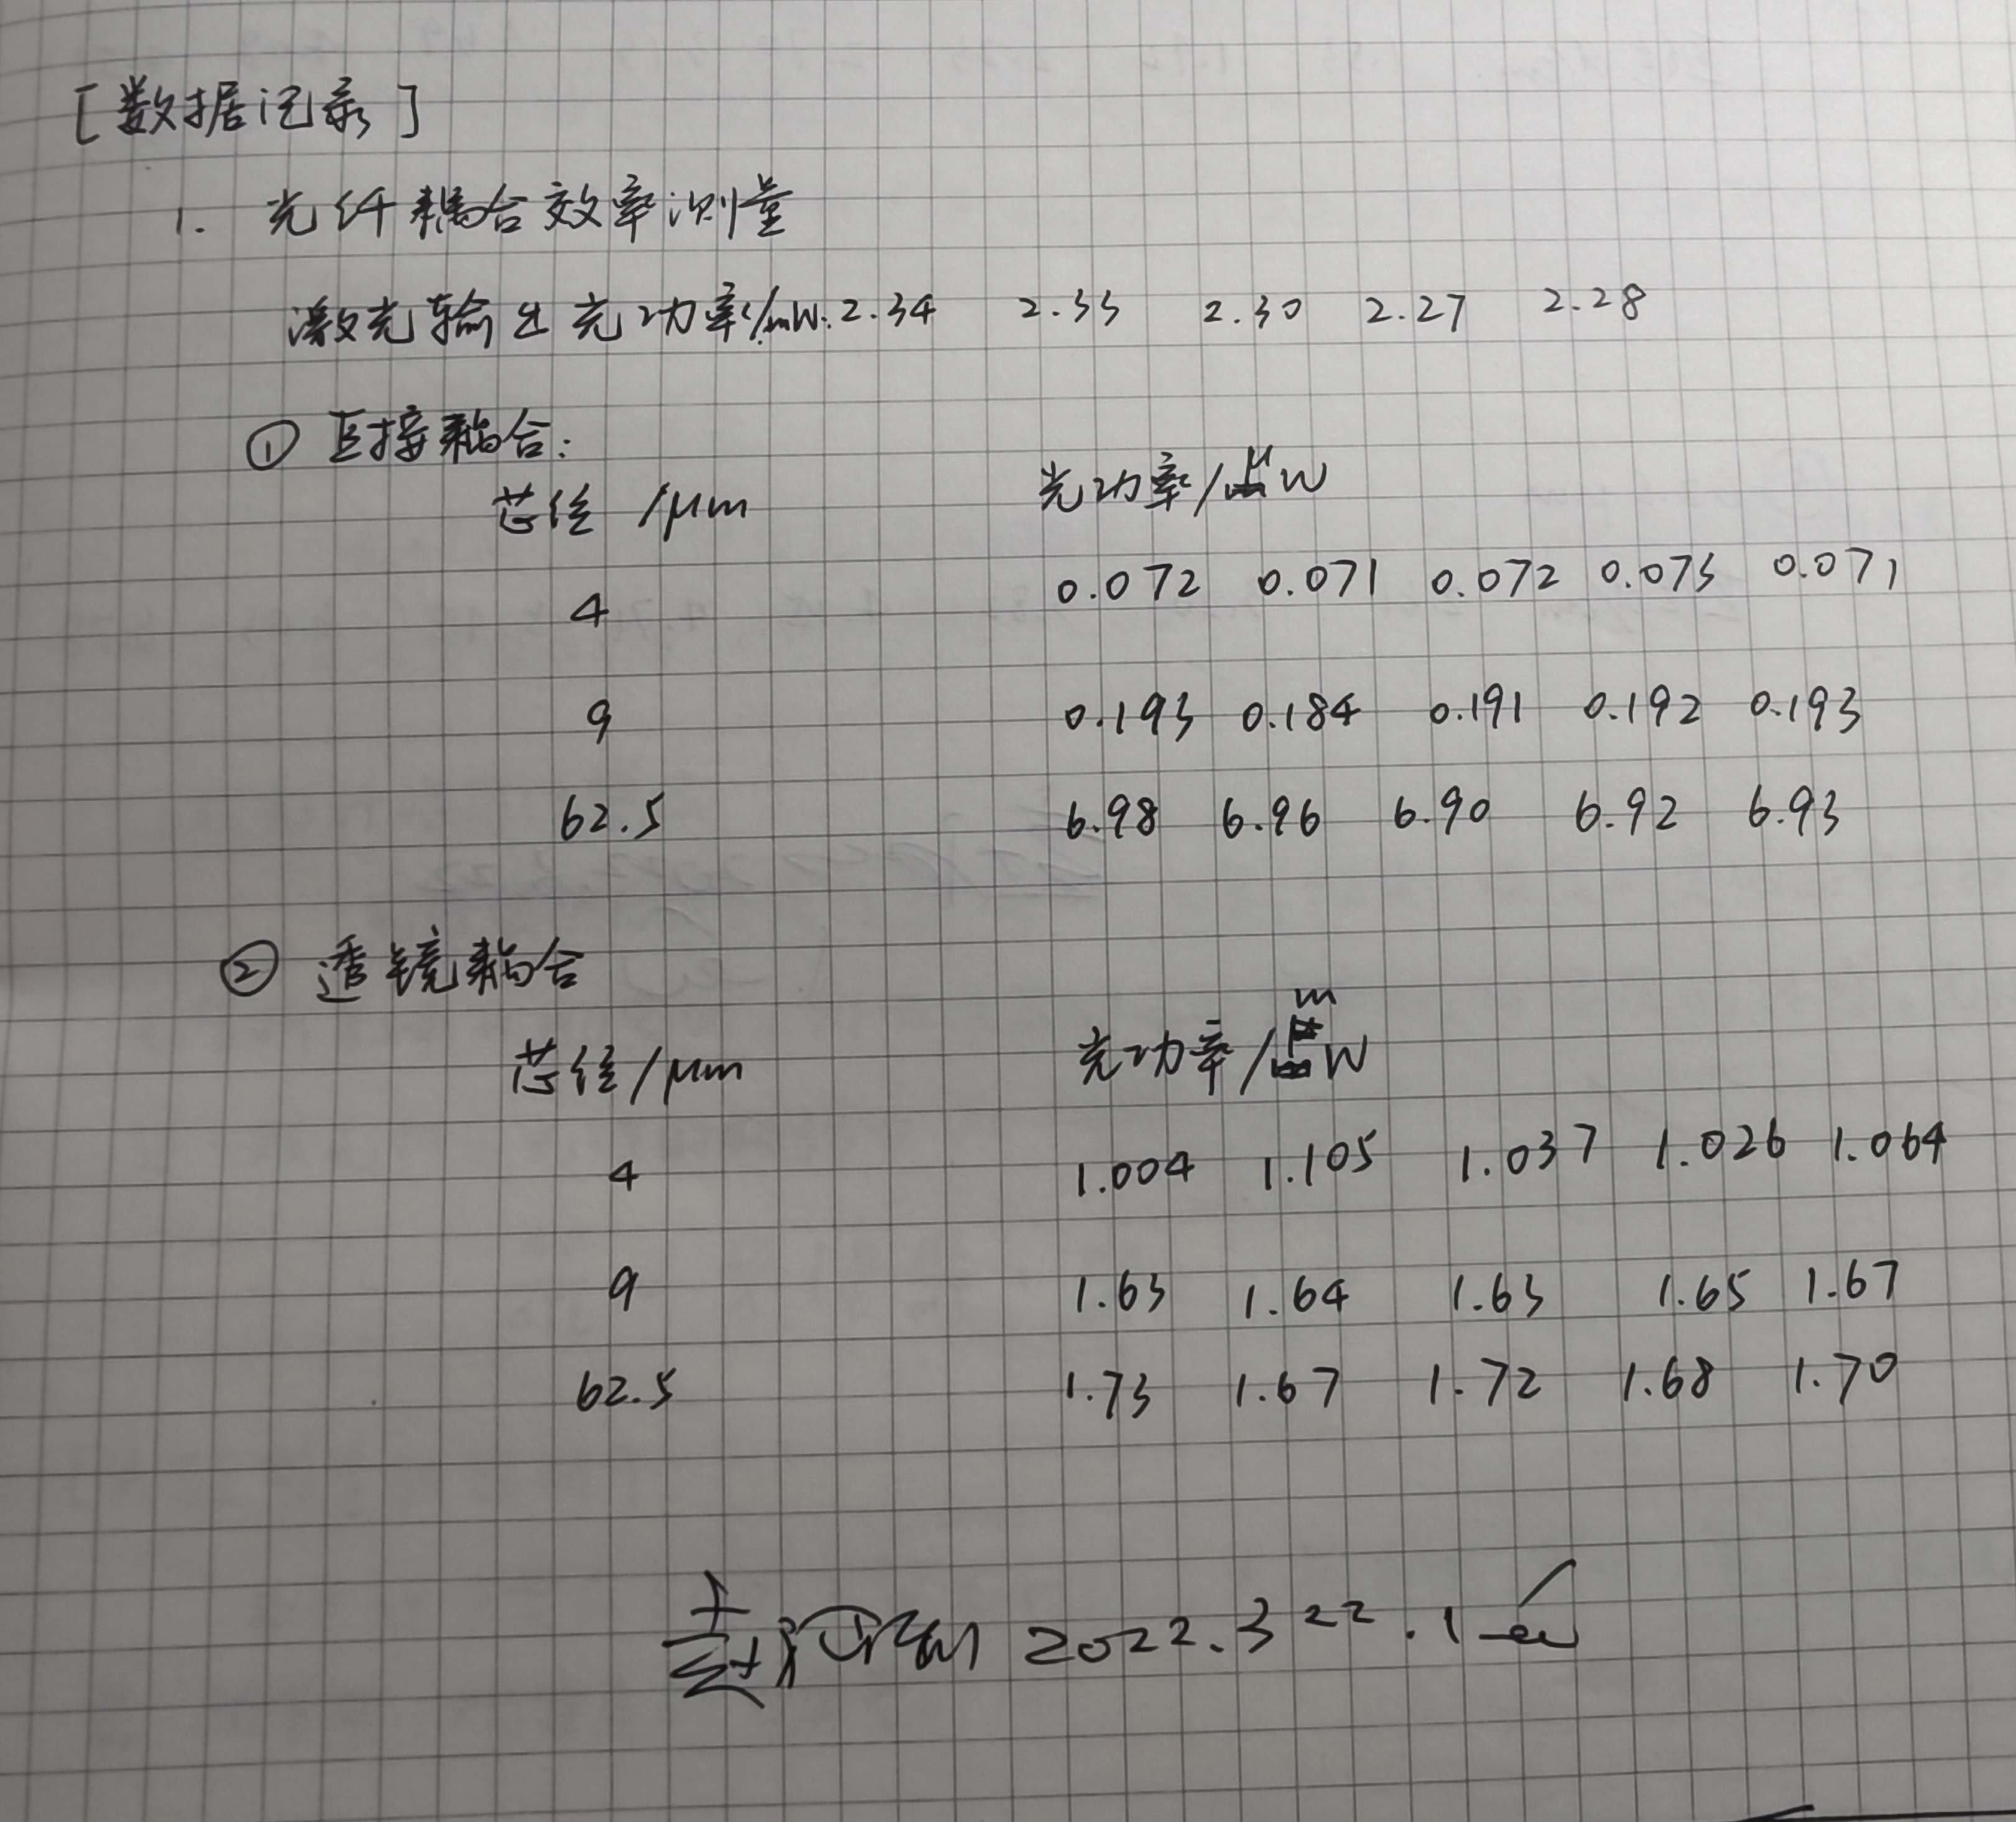 [数据记录]
1. 光纤耦合效率测量
激光输出光功率/mW: 2.34 2.33 2.30 2.27 2.28
① 直接耦合:
芯径 /μm 光功率/μW
4 0.072 0.071 0.072 0.073 0.071
9 0.193 0.184 0.191 0.192 0.193
62.5 6.98 6.96 6.90 6.92 6.93
② 透镜耦合
芯径/μm 光功率/mW
4 1.004 1.105 1.037 1.026 1.064
9 1.63 1.64 1.63 1.65 1.67
62.5 1.73 1.67 1.72 1.68 1.70
2022.3 22.